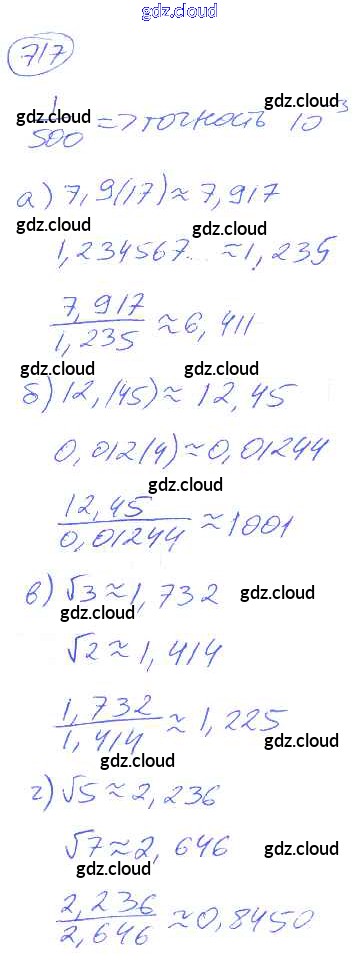 gdz.cloud
717
gdz.cloud gdz.cloud
1/500 => точность 10^3
а) 7,9(17) ≈ 7,917
gdz.cloud gdz.cloud
1,234567... ≈ 1,235
7,917/1,235 ≈ 6,411
gdz.cloud gdz.cloud
б) 12,(45) ≈ 12,45
gdz.cloud
0,012(4) ≈ 0,01244
gdz.cloud
12,45/0,01244 ≈ 1001
gdz.cloud
в) √3 ≈ 1,732 gdz.cloud
gdz.cloud
√2 ≈ 1,414
1,732/1,414 ≈ 1,225
gdz.cloud
gdz.cloud
г) √5 ≈ 2,236
√7 ≈ 2,646 gdz.cloud
gdz.cloud
2,236/2,646 ≈ 0,8450